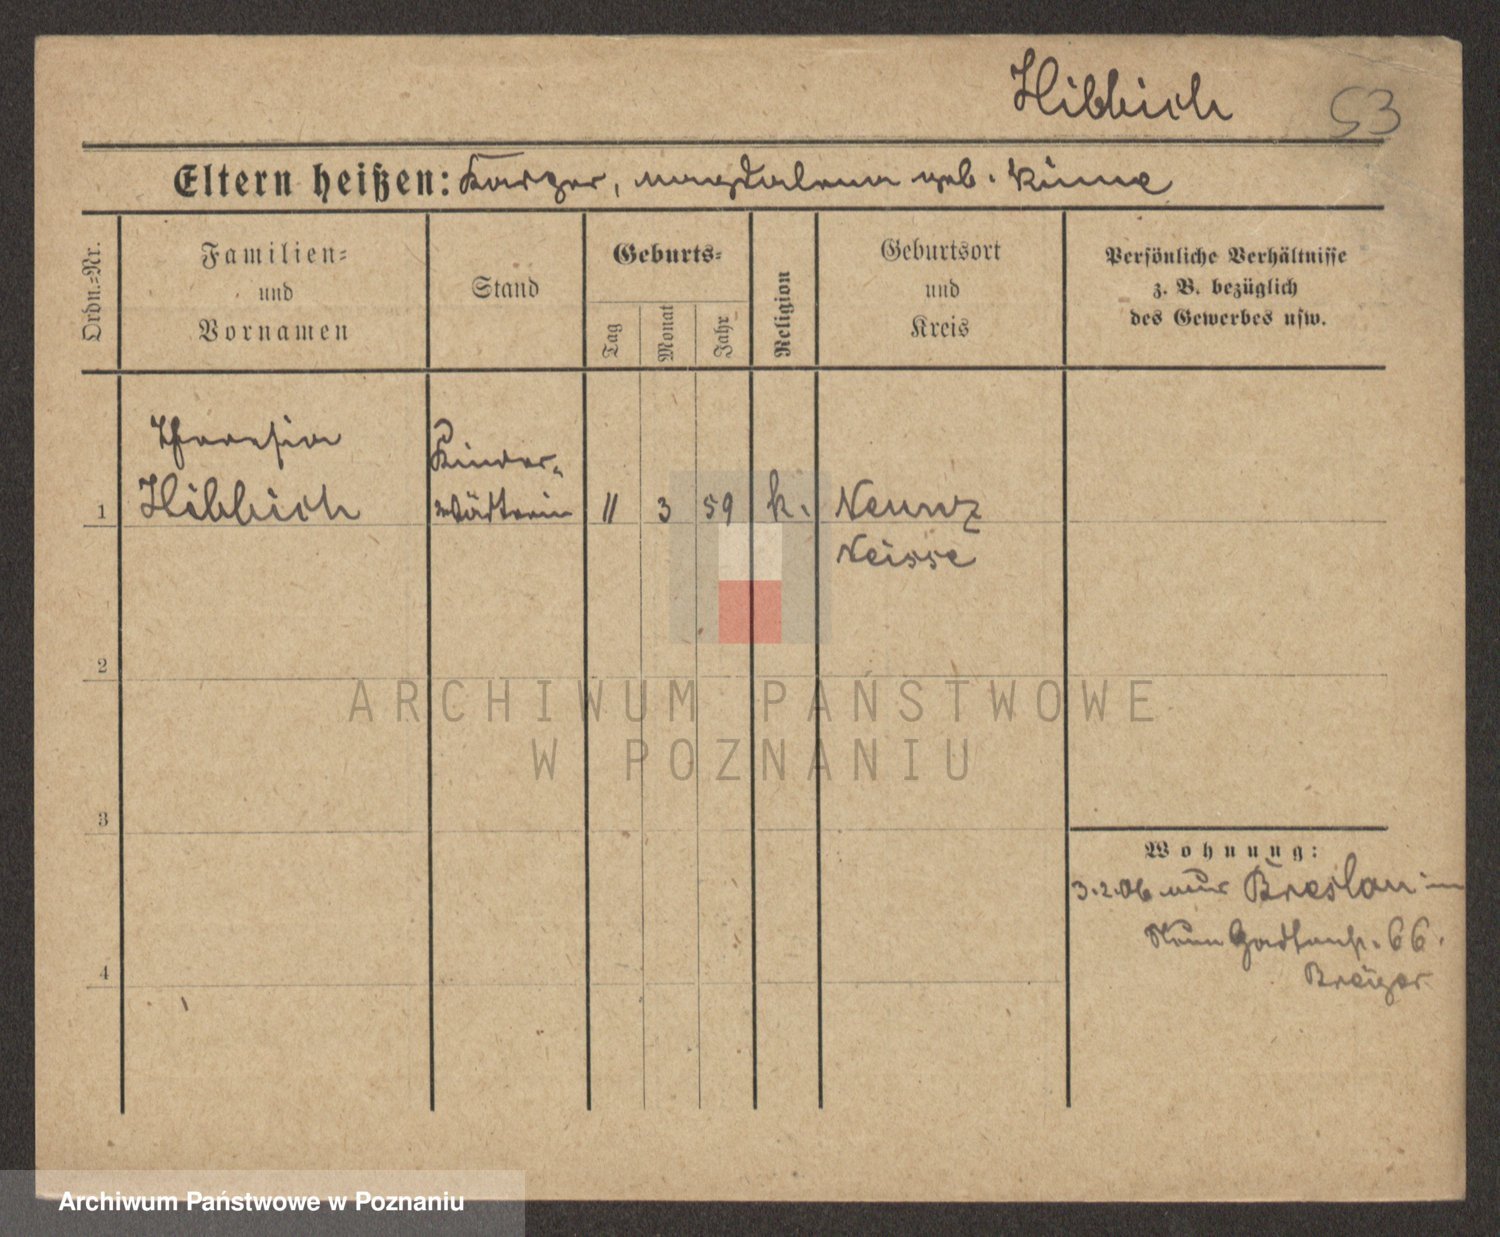 Hibbich
53
Eltern heißen: Karger, Magdalena geb.
Ordn.-Nr.
Familien-
und
Vornamen
Stand
Geburts-
Tag
Monat
Jahr
Religion
Geburtsort
und
Kreis
Persönliche Verhältnisse
z. B. bezüglich
des Gewerbes usw.
Theresia
Kinder-
1 Hibbich wärterin 11 3 59 k. Neunz
Neisse
2
ARCHIWUM PAŃSTWOWE
W POZNANIU
3
Wohnung:
3.2.06 aus Breslau
66.
4
Archiwum Państwowe w Poznaniu